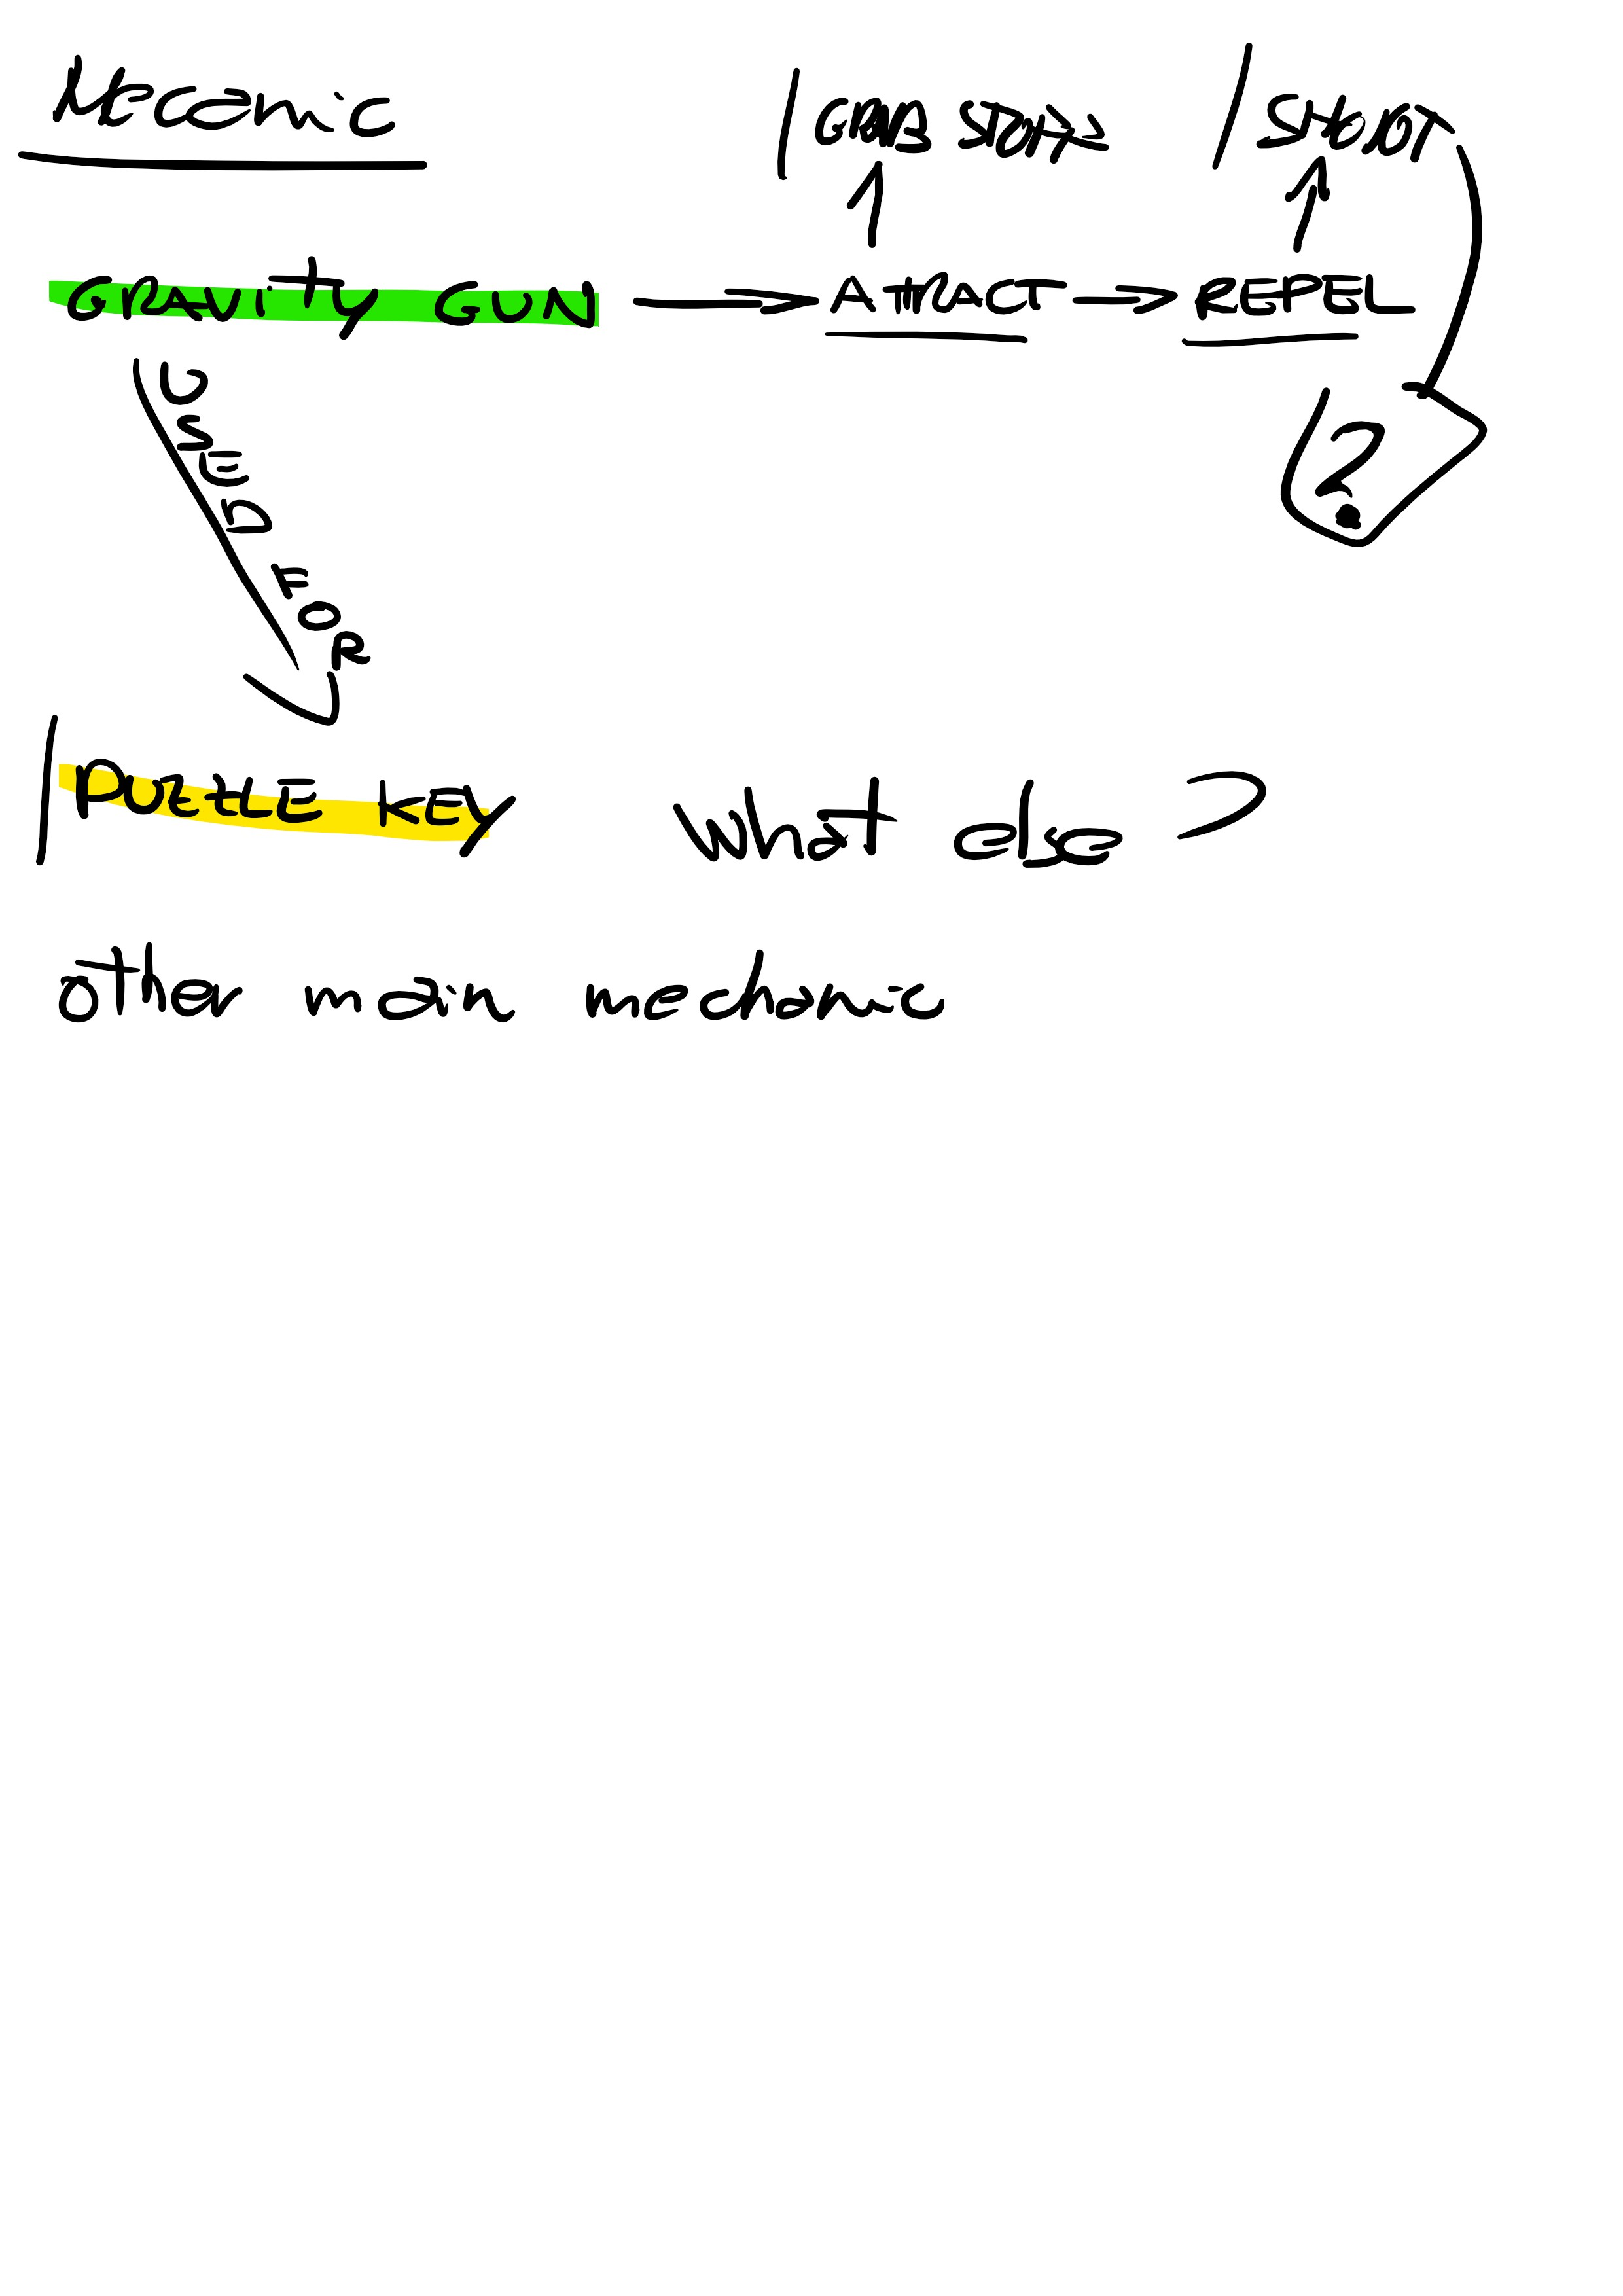 Mecanic
story
Gravity Gun ATTRACT REPEL
?
USED FOR
PUZZLE KEY what else ?
other main mechanic